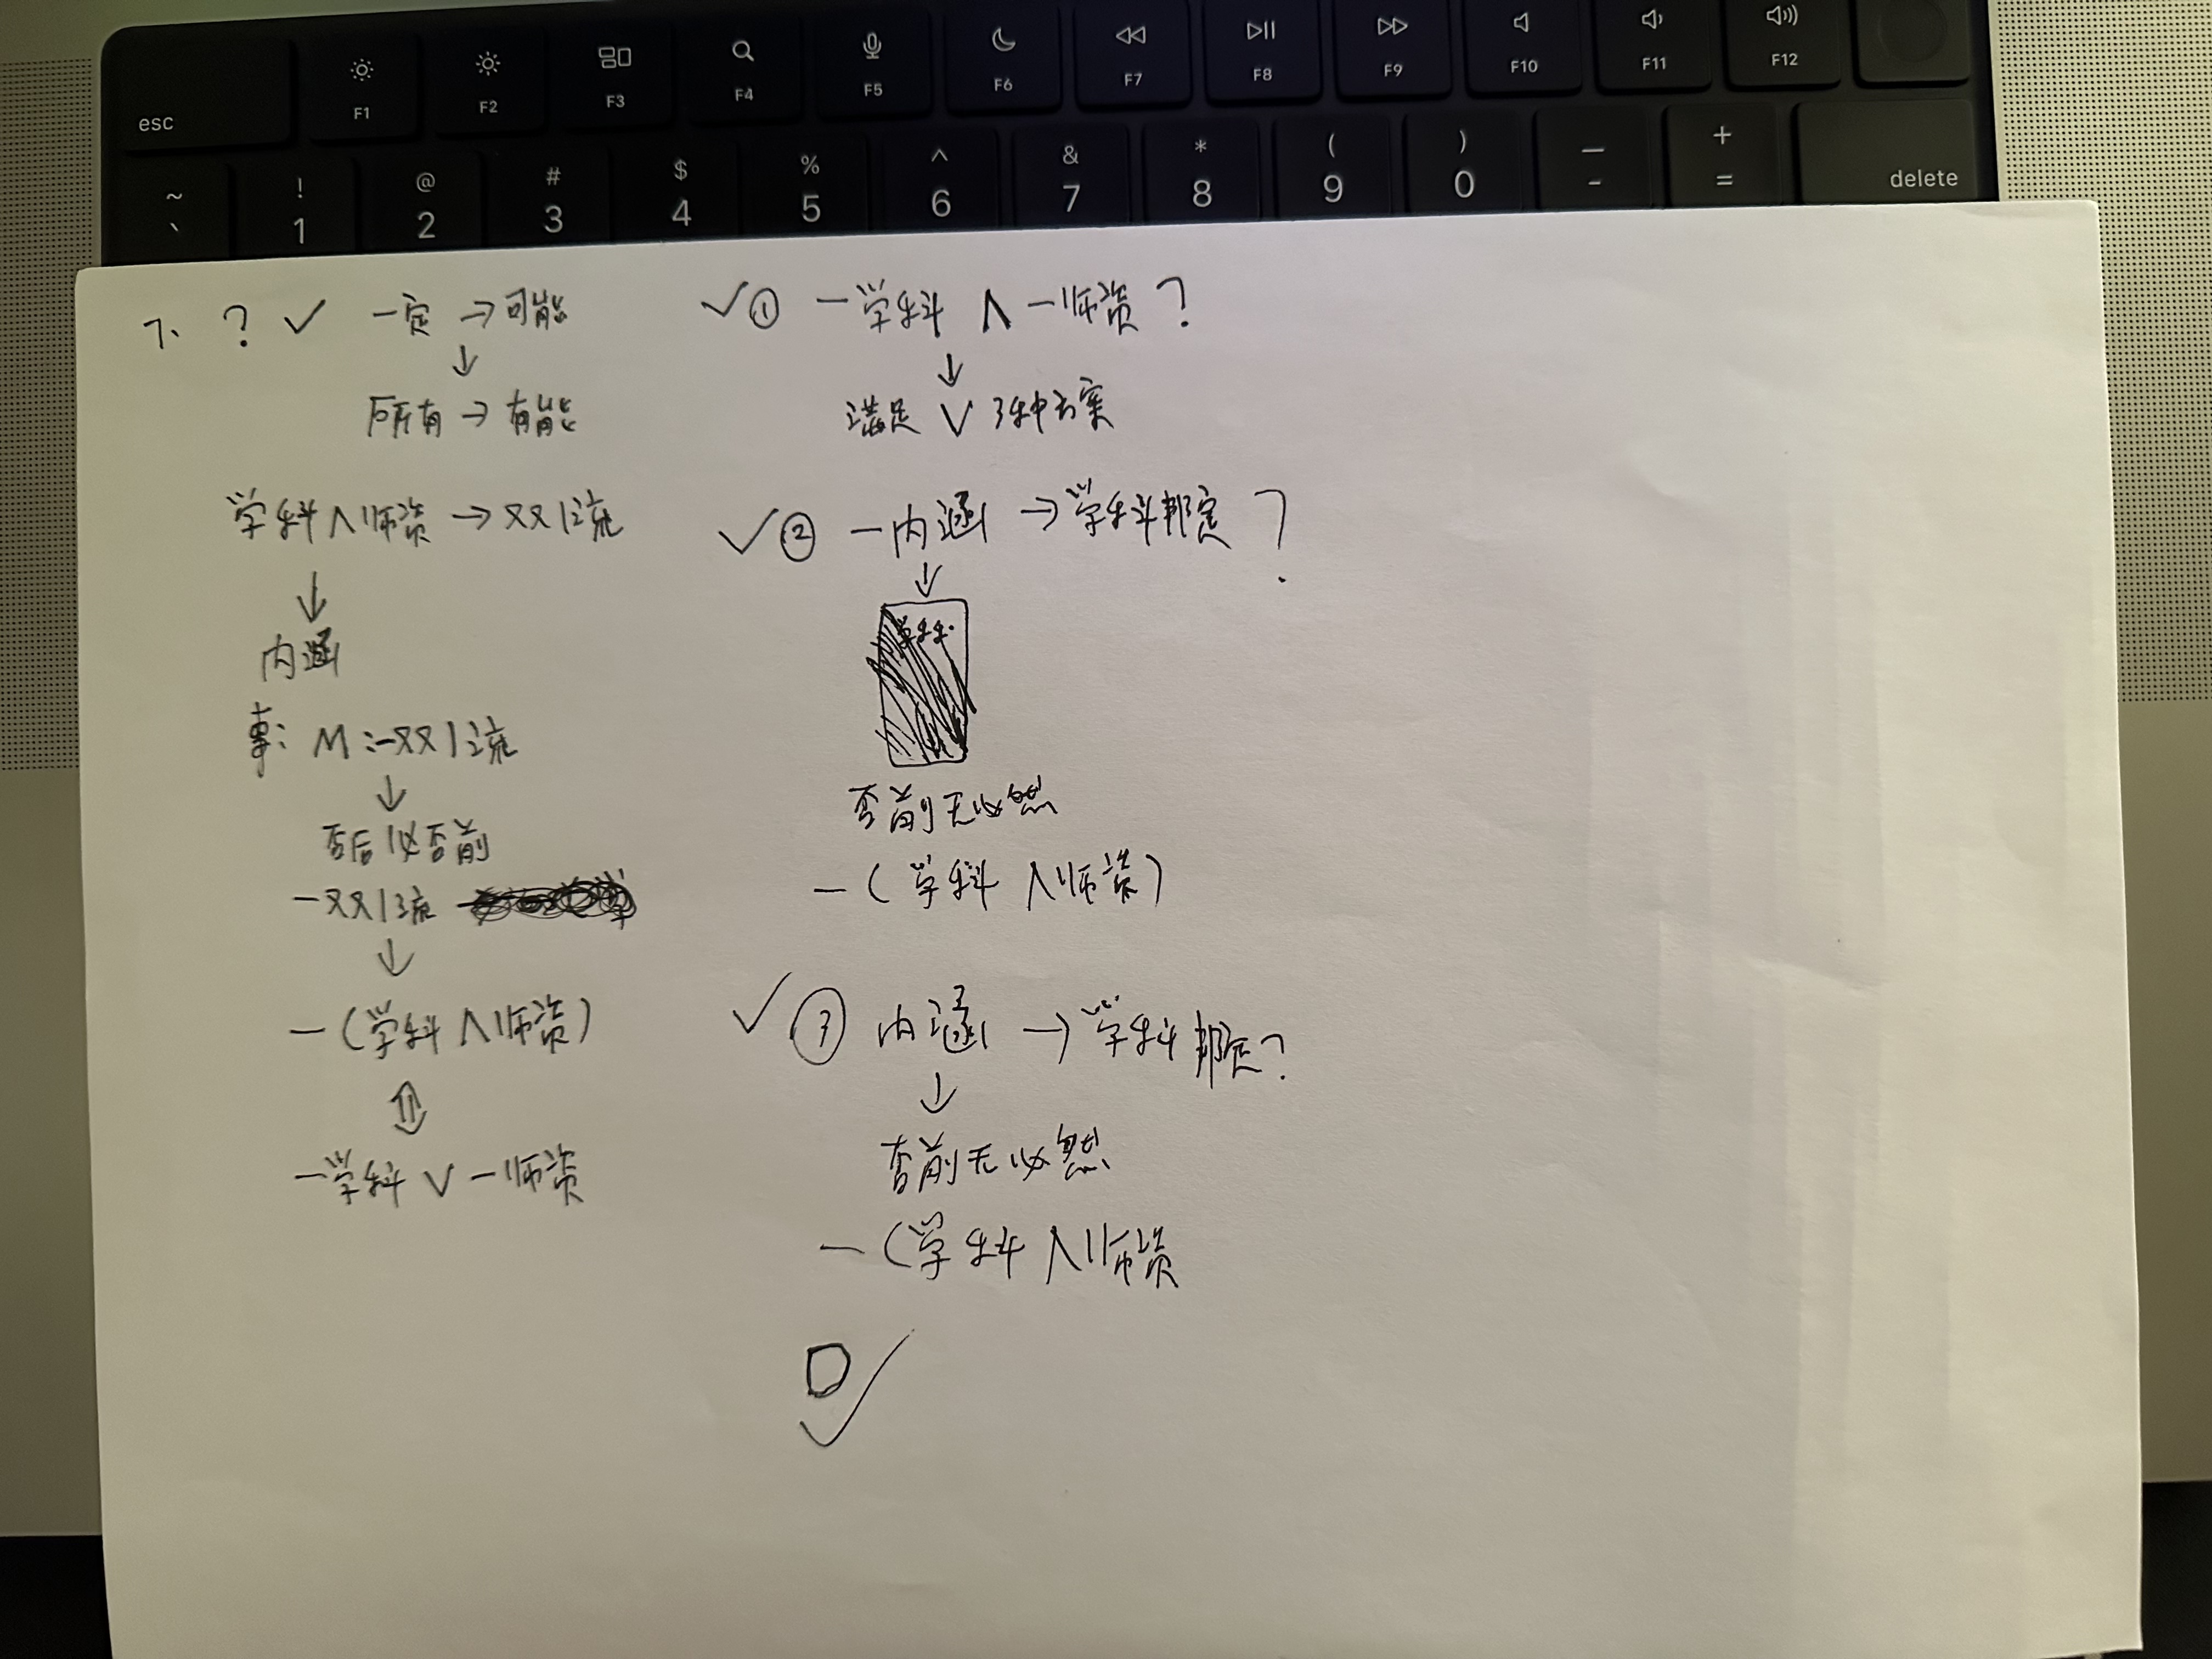 esc
F1
F2
F3
F4
F5
F6
F7
F8
F9
F10
F11
F12
~ `
! 1
@ 2
# 3
$ 4
% 5
^ 6
& 7
* 8
( 9
) 0
— -
+ =
delete
7、 ? ✓ 一定 → 可能
↓
所有 → 有能
学科 ∧ 师资 → 双1流
↓
内涵
事: M:-双1流
↓
否后必否前
-双1流
↓
-(学科 ∧ 师资)
⇕
-学科 ∨ -师资
✓① -学科 ∧ -师资?
↓
满足 ∨ 3种方案
✓② -内涵 → 学科?
↓
否前无必然
-(学科 ∧ 师资)
✓③ 内涵 → 学科?
↓
否前无必然
-(学科 ∧ 师资
D✓